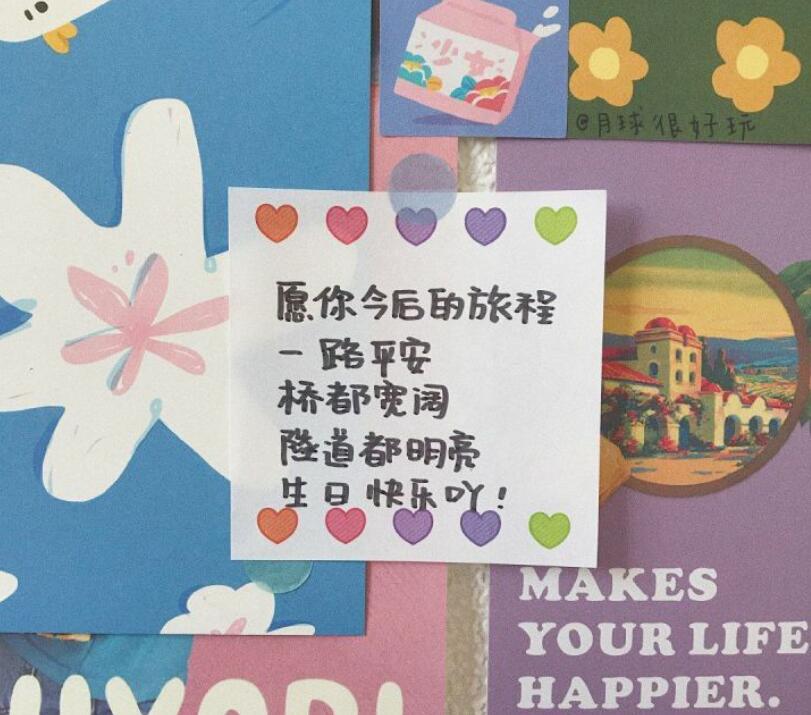 少女
@月球很好玩
愿你今后的旅程
一路平安
桥都宽阔
隧道都明亮
生日快乐吖!
MAKES
YOUR LIFE
HAPPIER.